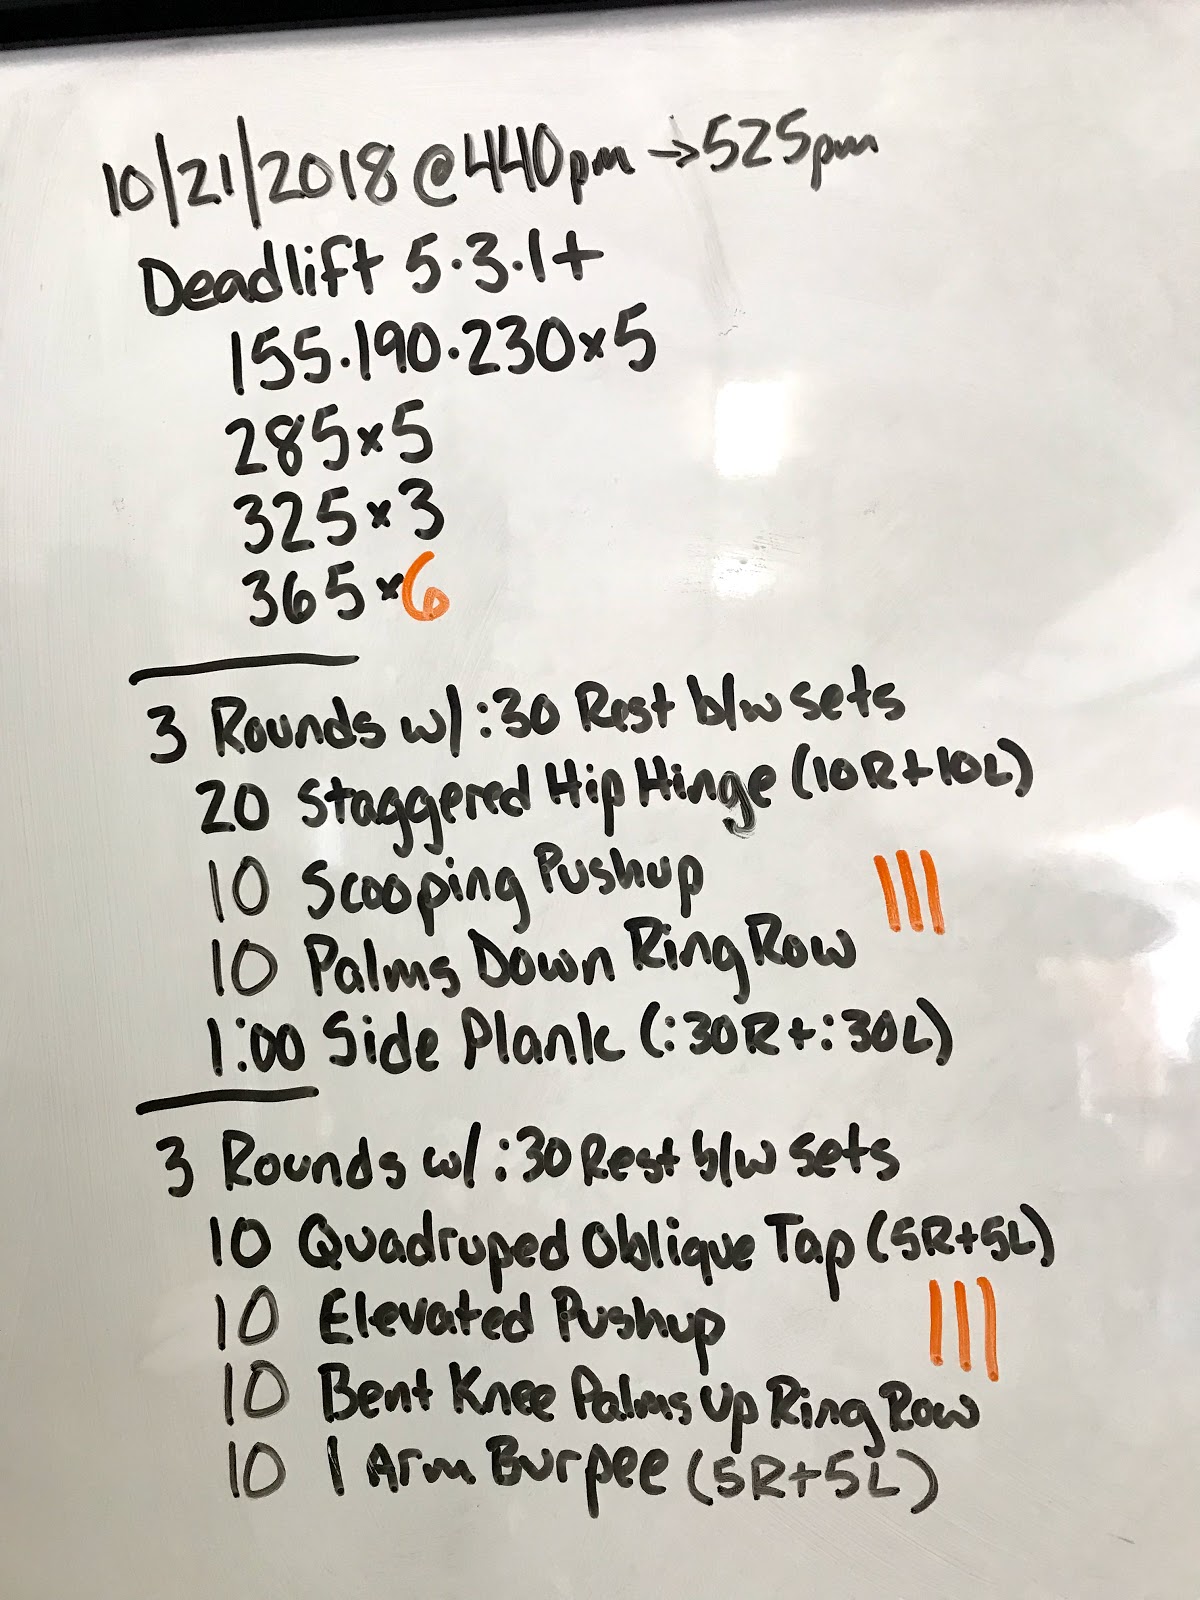 10/21/2018 @ 440pm → 525pm
Deadlift 5.3.1+
155.190.230x5
285x5
325x3
365x6
3 Rounds w/ :30 Rest b/w sets
20 Staggered Hip Hinge (10R+10L)
10 Scooping Pushup
|||
10 Palms Down Ring Row
1:00 Side Plank (:30R+:30L)
3 Rounds w/ :30 Rest b/w sets
10 Quadruped Oblique Tap (5R+5L)
10 Elevated Pushup
|||
10 Bent Knee Palms Up Ring Row
10 1 Arm Burpee (5R+5L)